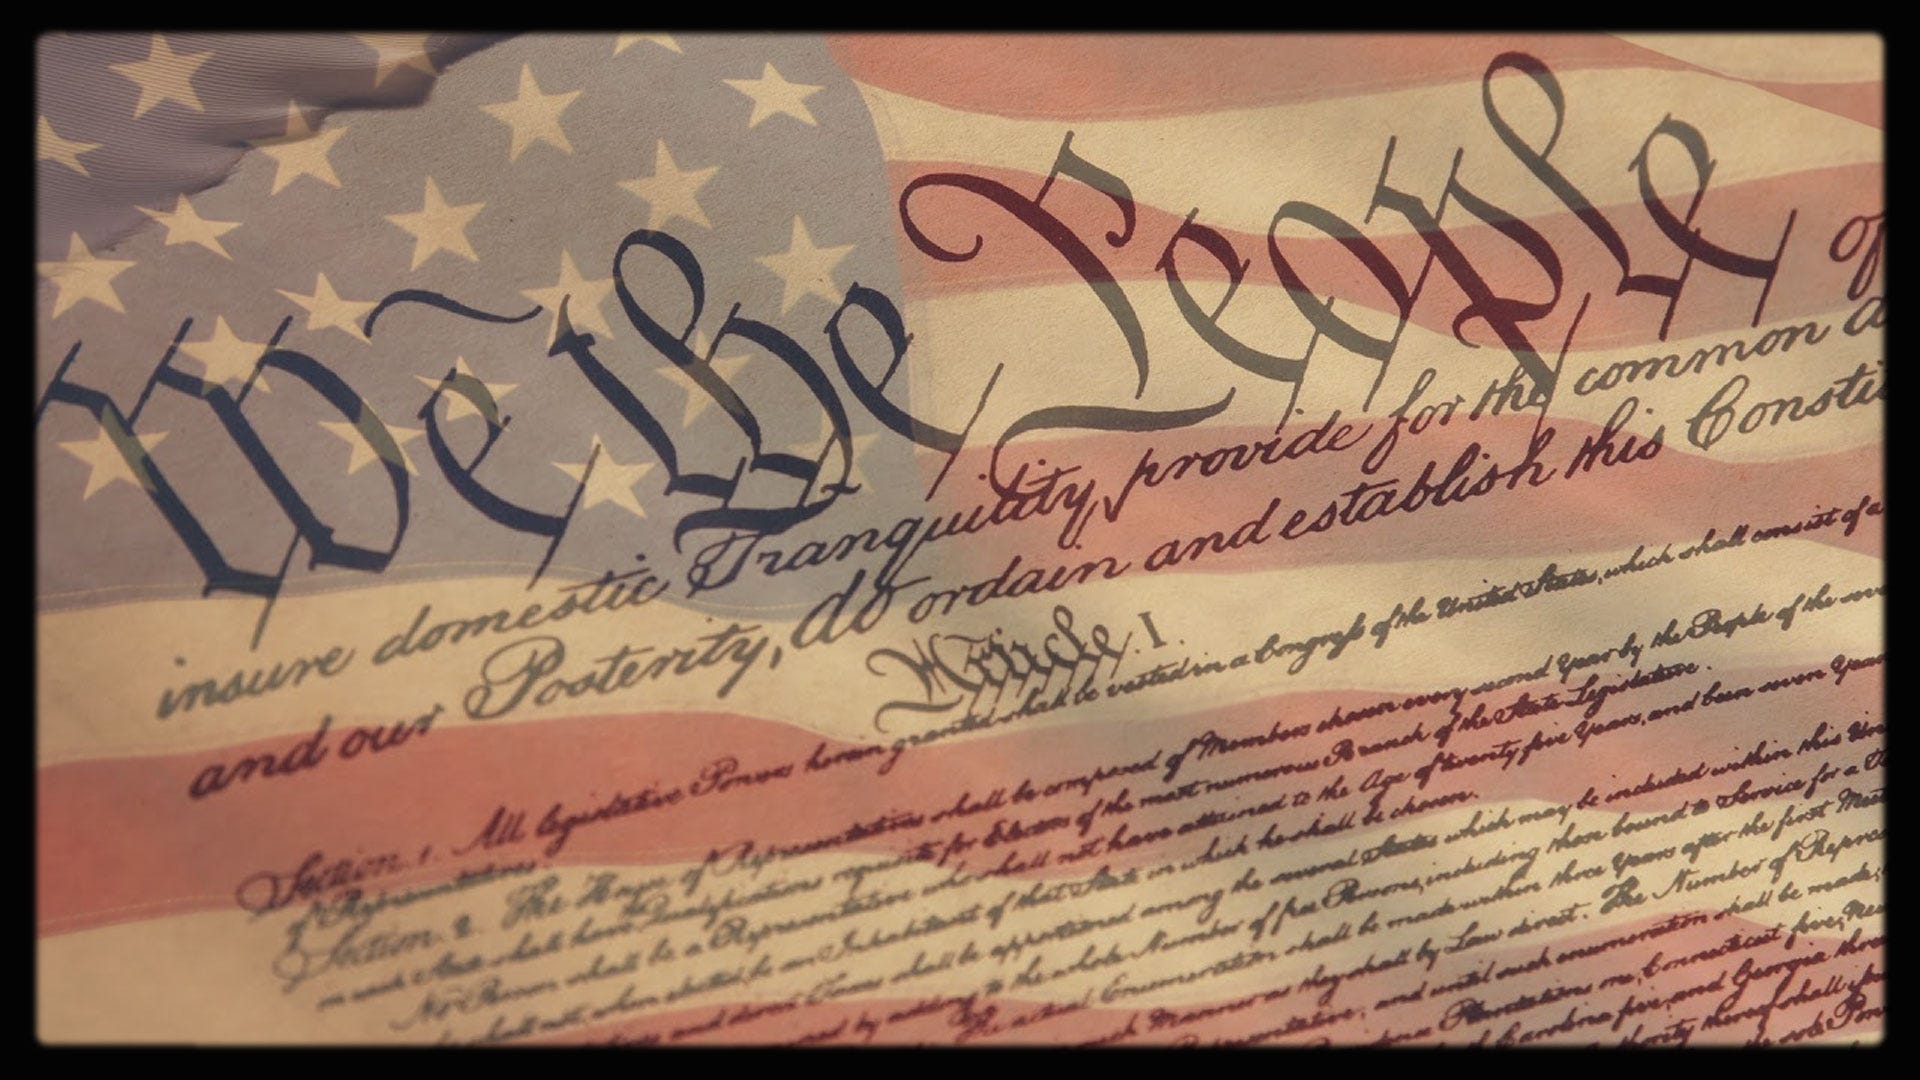 We the People of
insure domestic Tranquility, provide for the common d
and our Posterity, do ordain and establish this Consti
Article. I.
Section. 1. All legislative Powers herein granted shall be vested in a Congress of the United States, which shall consist of a
of Representatives.
Section. 2. The House of Representatives shall be composed of Members chosen every second Year by the People of the seve
in each State shall have the Qualifications requisite for Electors of the most numerous Branch of the State Legislature.
No Person shall be a Representative who shall not have attained to the Age of twenty five Years, and been seven Years
shall not, when elected, be an Inhabitant of that State in which he shall be chosen.
and direct Taxes shall be apportioned among the several States which may be included within this Uni
by adding to the whole Number of free Persons, including those bound to Service for a Te
The actual Enumeration shall be made within three Years after the first Meet
such Manner as they shall by Law direct. The Number of Represe
Representative; and until such enumeration shall be made,
Plantations one, Connecticut five, New
Carolina five, and Georgia three
thereof shall
the sole Pow